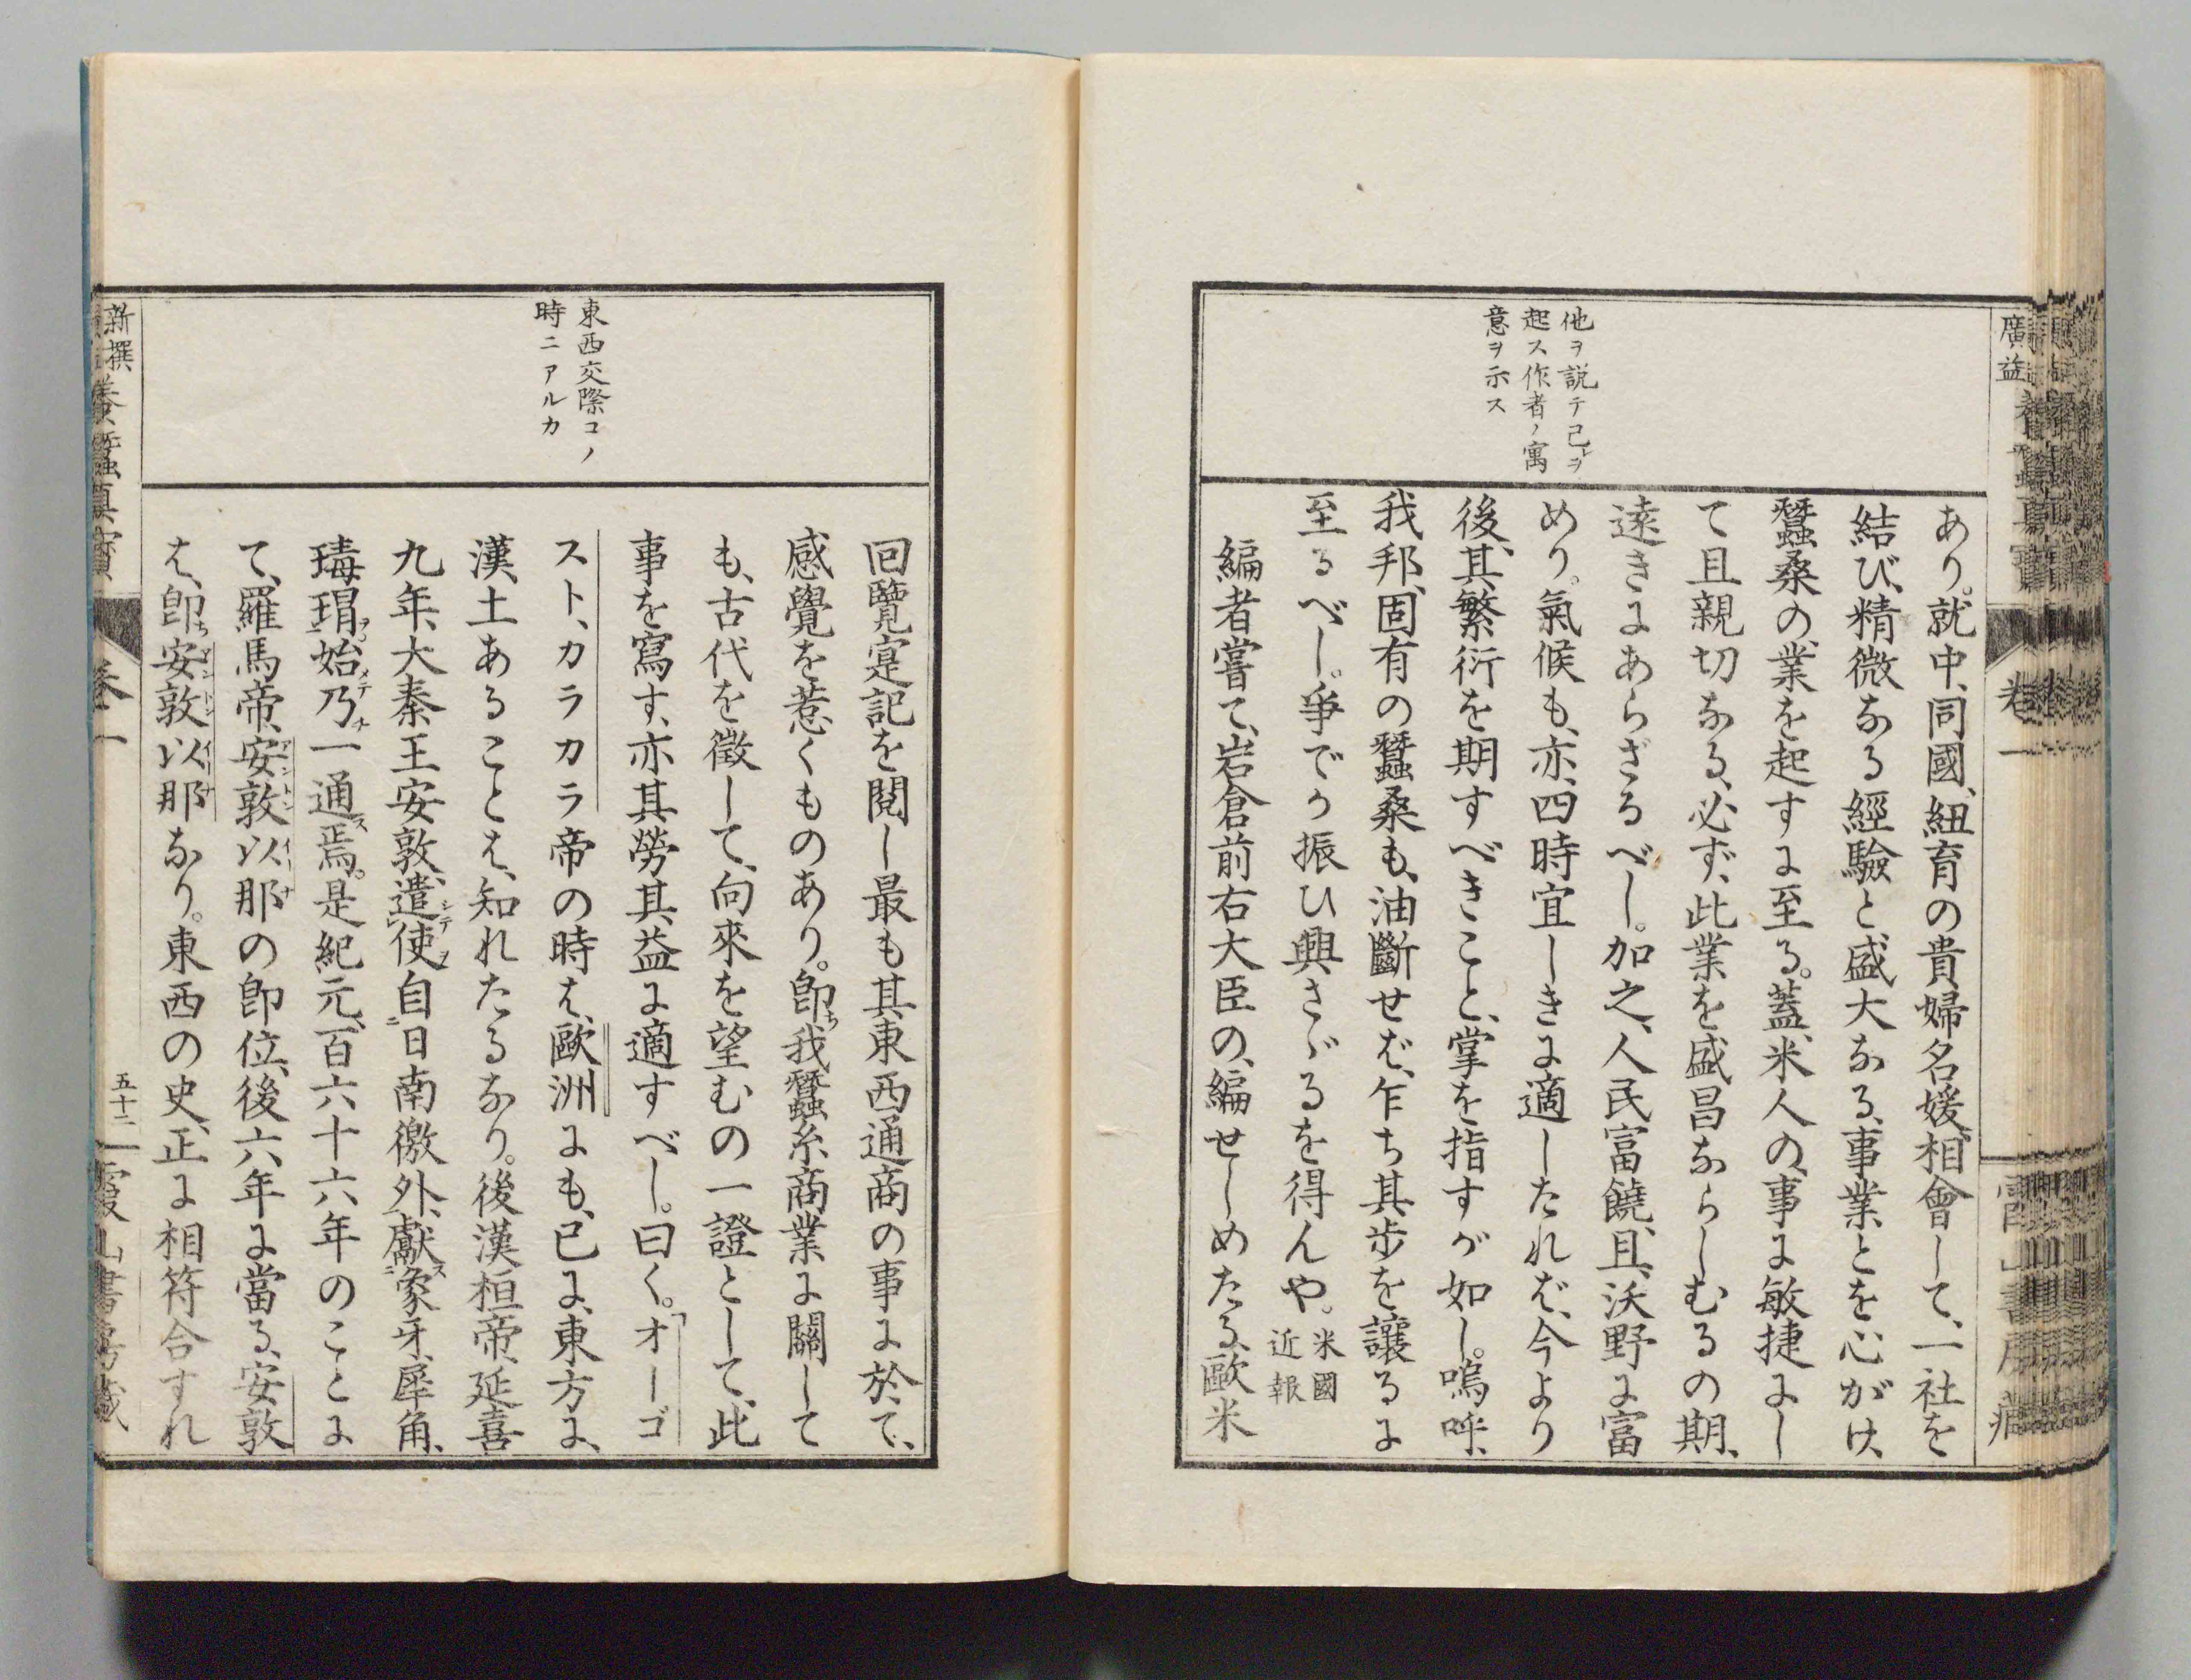 廣益
養蠶真寶
卷一
他ヲ説テ己レヲ
起ス作者ノ寓
意ヲ示ス
あり。就中、同國、紐育の貴婦名媛、相會して、一社を
結び、精微なる經驗と、盛大なる、事業とを心がけ、
蠶桑の、業を起すに至る。蓋、米人の、事に敏捷にし
て且親切なる、必ず、此業を盛昌ならしむるの期、
遠きにあらざるべし。加之、人民富饒、且、沃野に富
めり。氣候も、亦、四時宜しきに適したれば、今より
後、其繁衍を期すべきこと、掌を指すが如し。嗚呼、
我邦、固有の蠶桑も、油斷せば、乍ち其歩を讓るに
至るべし。爭でか振ひ興さゞるを得んや。米國
近報
編者嘗て、岩倉前右大臣の、編せしめたる、歐米
東西交際コノ
時ニアルカ
回覽寔記を閲し最も其東西通商の事に於て、
感覺を惹くものあり。即ち我蠶糸商業に關して
も、古代を徴して、向來を望むの一證として、此
事を寫す、亦其勞其益に適すべし。曰く。「オーゴ
スト、カラカラ帝の時は、歐洲にも、已に、東方に、
漢土あることは、知れたるなり。後漢桓帝、延喜
九年、大秦王安敦、遣シテ使ヲ自ニ日南徼外、獻ス二象牙、犀角、
瑇瑁ヲ一始メテ乃ナ一通ス焉。是紀元、百六十六年のことに
て、羅馬帝、安敦以那アントンイーナの即位、後六年に當る、安敦
は、即ち安敦以那アントンイーナなり。東西の史、正に相符合すれ
新撰
養蠶真寶
卷一
五十二
霞山書房藏